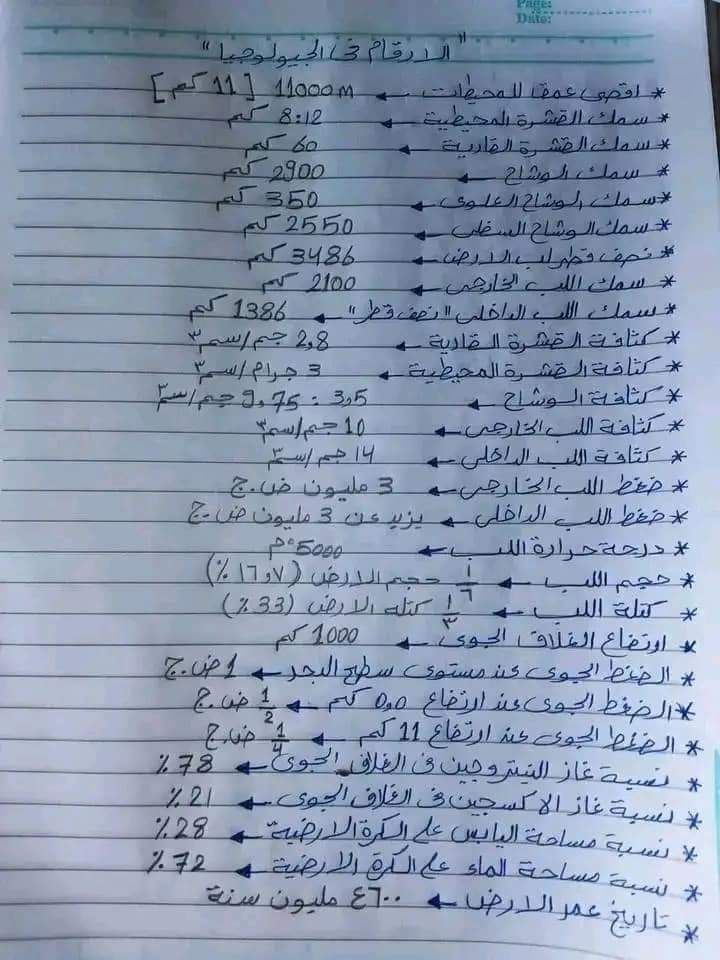 Page:
Date:
"الارقام فى الجيولوجيا"
* اقصى عمق للمحيطات ← 11000m [11 كم]
* سمك القشرة المحيطية ← 8:12 كم
* سمك القشرة القارية ← 60 كم
* سمك الوشاح ← 2900 كم
* سمك الوشاح العلوى ← 350 كم
* سمك الوشاح السفلى ← 2550 كم
* نصف قطر لب الارض ← 3486 كم
* سمك اللب الخارجى ← 2100 كم
* سمك اللب الداخلى "نصف قطر" ← 1386 كم
* كثافة القشرة القارية ← 2,8 جم/سم٣
* كثافة القشرة المحيطية ← 3 جرام/سم٣
* كثافة الوشاح ← 3,5 : 9,75 جم/سم٣
* كثافة اللب الخارجى ← 10 جم/سم٣
* كثافة اللب الداخلى ← 14 جم/سم٣
* ضغط اللب الخارجى ← 3 مليون ض.ج
* ضغط اللب الداخلى ← يزيد عن 3 مليون ض.ج
* درجة حرارة اللب ← 5000°م
* حجم اللب ← ١/٦ حجم الارض (١٦,٧ ٪)
* كتلة اللب ← ١/٣ كتلة الارض (33 ٪)
* ارتفاع الغلاف الجوى ← 1000 كم
* الضغط الجوى عند مستوى سطح البحر ← 1 ض.ج
* الضغط الجوى عند ارتفاع ٥,٥ كم ← 1/2 ض.ج
* الضغط الجوى عند ارتفاع 11 كم ← 1/4 ض.ج
* نسبة غاز النيتروجين فى الغلاف الجوى ← 78 ٪
* نسبة غاز الاكسجين فى الغلاف الجوى ← 21 ٪
* نسبة مساحة اليابس على الكرة الارضية ← 28 ٪
* نسبة مساحة الماء على الكرة الارضية ← 72 ٪
* تاريخ عمر الارض ← ٤٦٠٠ مليون سنة